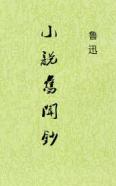 魯迅
小說舊聞鈔